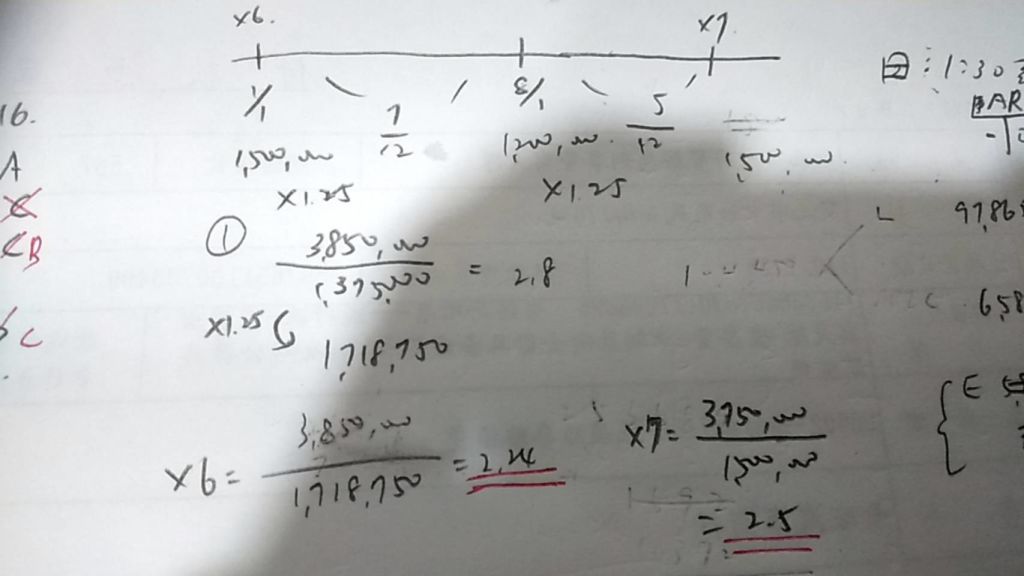 x6. x7.
1/1 7/12 8/1 5/12
16.
1,500,000 1,200,000. 1,500,000.
A
x1.25 x1.25
C
CB
① 3,850,000 / 1,375,000 = 2.8
x1.25 1,718,750
C
x6 = 3,850,000 / 1,718,750 = 2.24
x7 = 3,750,000 / 1,500,000
= 2.5
1:30
AR
L 97,86
C 6,58
E